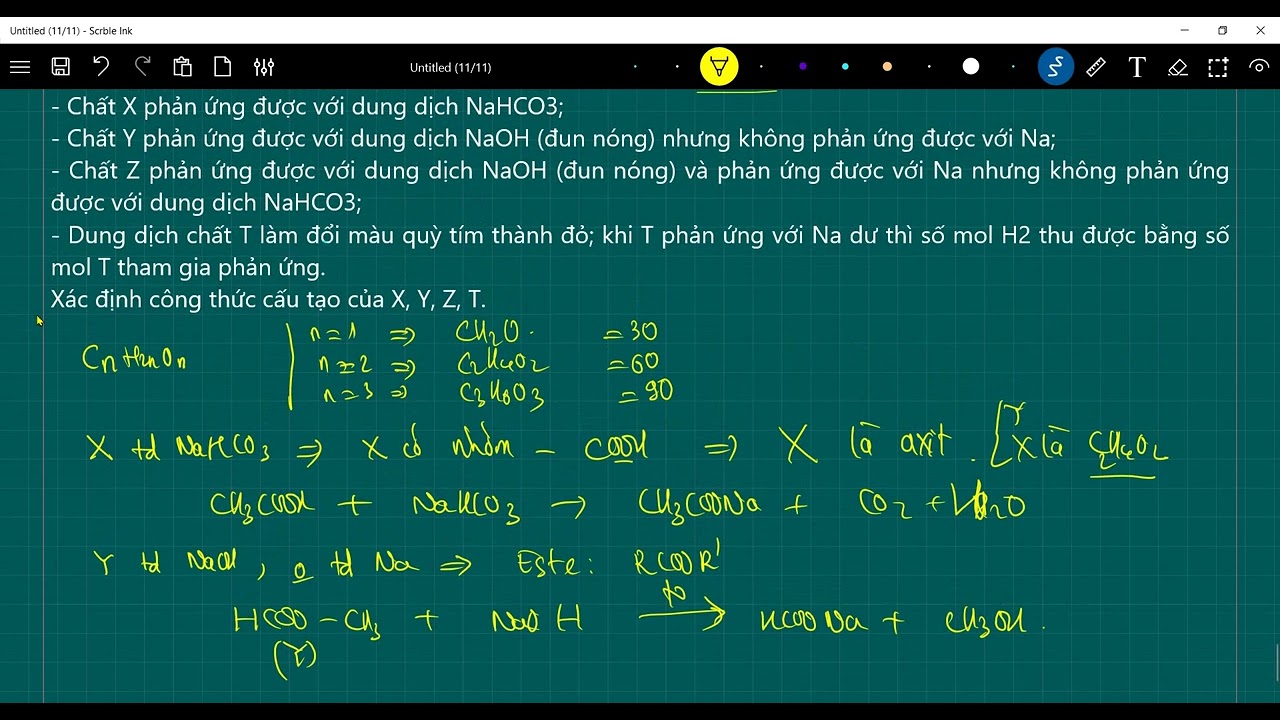 Untitled (11/11) - Scrble Ink
Untitled (11/11)
- Chất X phản ứng được với dung dịch NaHCO3;
- Chất Y phản ứng được với dung dịch NaOH (đun nóng) nhưng không phản ứng được với Na;
- Chất Z phản ứng được với dung dịch NaOH (đun nóng) và phản ứng được với Na nhưng không phản ứng
được với dung dịch NaHCO3;
- Dung dịch chất T làm đổi màu quỳ tím thành đỏ; khi T phản ứng với Na dư thì số mol H2 thu được bằng số
mol T tham gia phản ứng.
Xác định công thức cấu tạo của X, Y, Z, T.
n=1 => CH2O = 30
CnH2nOn n=2 => C2H4O2 = 60
n=3 => C3H6O3 = 90
X td NaHCO3 => X có nhóm - COOH => X là axit. X là C2H4O2
CH3COOH + NaHCO3 → CH3COONa + CO2 + H2O
Y td NaOH, o td Na => Este: RCOOR'
HCOO-CH3 + NaOH t° → HCOONa + CH3OH.
(Y)